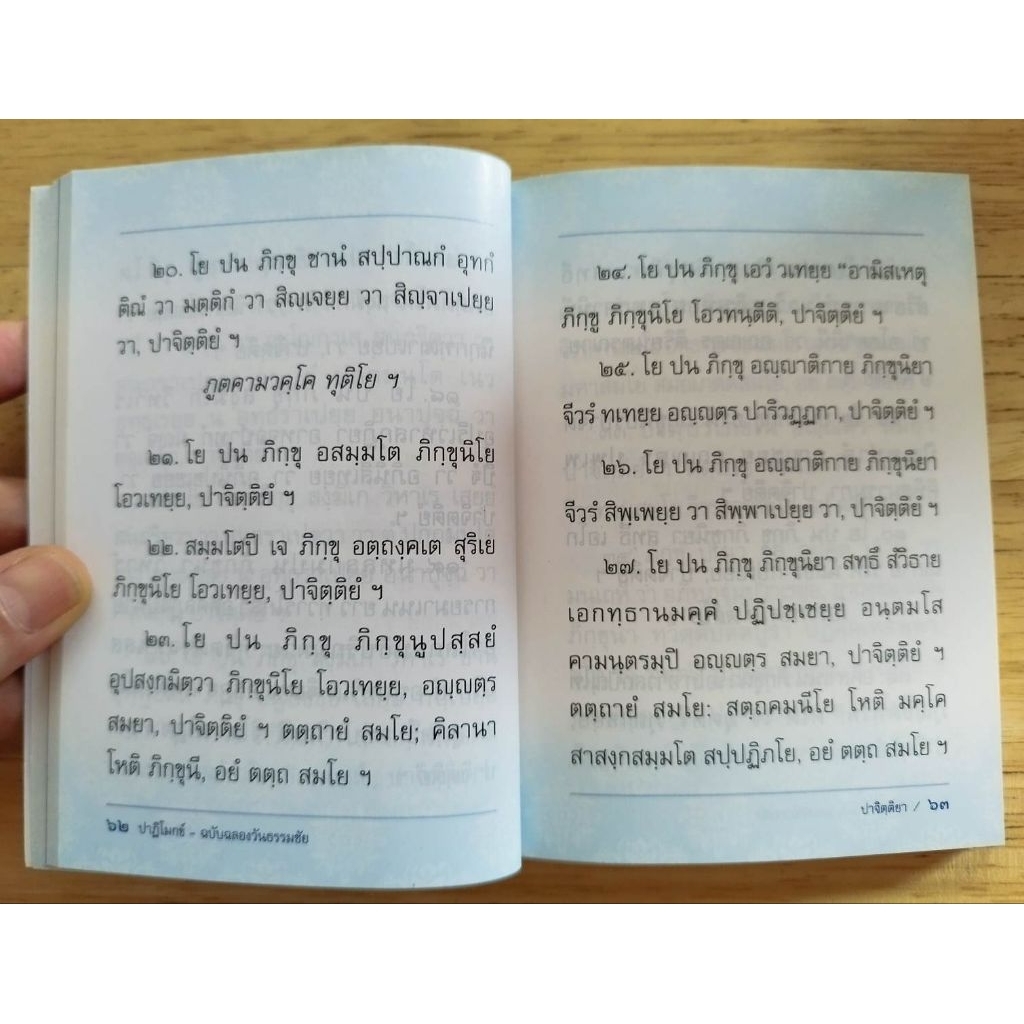 ๒๐. โย ปน ภิกฺขุ ชานํ สปฺปาณกํ อุทกํ
ติณํ วา มตฺติกํ วา สิญฺเจยฺย วา สิญฺจาเปยฺย
วา, ปาจิตฺติยํ ฯ
ภูตคามวคฺโค ทุติโย ฯ
๒๑. โย ปน ภิกฺขุ อสมฺมโต ภิกฺขุนิโย
โอวเทยฺย, ปาจิตฺติยํ ฯ
๒๒. สมฺมโตปิ เจ ภิกฺขุ อตฺถงฺคเต สุริเย
ภิกฺขุนิโย โอวเทยฺย, ปาจิตฺติยํ ฯ
๒๓. โย ปน ภิกฺขุ ภิกฺขุนูปสฺสยํ
อุปสงฺกมิตฺวา ภิกฺขุนิโย โอวเทยฺย, อญฺญตฺร
สมยา, ปาจิตฺติยํ ฯ ตตฺถายํ สมโย; คิลานา
โหติ ภิกฺขุนี, อยํ ตตฺถ สมโย ฯ
๖๒ ปาฏิโมกข์ - ฉบับฉลองวันธรรมชัย
๒๔. โย ปน ภิกฺขุ เอวํ วเทยฺย “อามิสเหตุ
ภิกฺขู ภิกฺขุนิโย โอวทนฺตีติ, ปาจิตฺติยํ ฯ
๒๕. โย ปน ภิกฺขุ อญฺญาติกาย ภิกฺขุนิยา
จีวรํ ทเทยฺย อญฺญตฺร ปาริวฏฺฏกา, ปาจิตฺติยํ ฯ
๒๖. โย ปน ภิกฺขุ อญฺญาติกาย ภิกฺขุนิยา
จีวรํ สิพฺเพยฺย วา สิพฺพาเปยฺย วา, ปาจิตฺติยํ ฯ
๒๗. โย ปน ภิกฺขุ ภิกฺขุนิยา สทฺธึ สํวิธาย
เอกทฺธานมคฺคํ ปฏิปชฺเชยฺย อนฺตมโส
คามนฺตรมฺปิ อญฺญตฺร สมยา, ปาจิตฺติยํ ฯ
ตตฺถายํ สมโย: สตฺถคมนีโย โหติ มคฺโค
สาสงฺกสมฺมโต สปฺปฏิภโย, อยํ ตตฺถ สมโย ฯ
ปาจิตฺติยา / ๖๓